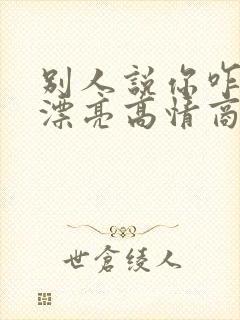 别人説你咋
漂亮高情商
世倉綾人